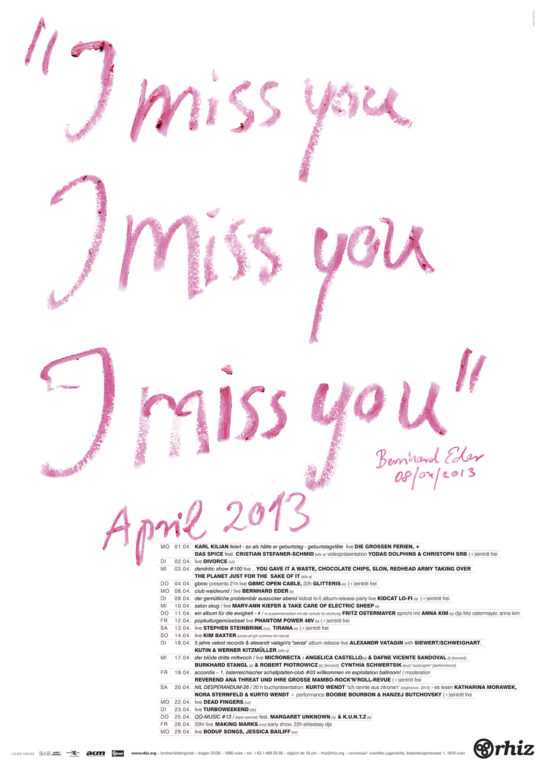 "I miss you
I miss you
I miss you"
Bernhard Eder
08/04/2013
April 2013
MO 01.04. KARL KILIAN feiert - so als hätte er geburtstag - geburtstagsfete live DIE GROSSEN FERIEN, +
DAS SPICE feat. CRISTIAN STEFANER-SCHMID videopräsentation YODAS DOLPHINS & CHRISTOPH SRB (+)eintritt frei
DI 02.04. live DIVORCE (uk)
MI 03.04. dendritic show #100 live .. YOU GAVE IT A WASTE, CHOCOLATE CHIPS, SLON, REDHEAD ARMY TAKING OVER
THE PLANET JUST FOR THE SAKE OF IT
DO 04.04. gbmc presents 21h live GBMC OPEN CABLE, 22h GLITTERIS (a) (+)eintritt frei
MO 08.04. club waidwund / live BERNHARD EDER (a)
DI 09.04. der gemütliche problembär auszucker abend kidcat lo-fi album-release-party live KIDCAT LO-FI (a) (+)eintritt frei
MI 10.04. salon skug / live MARY-ANN KIEFER & TAKE CARE OF ELECTRIC SHEEP (a)
DO 11.04. ein album für die ewigkeit - 4 / in zusammenarbeit mit der schule für dichtung FRITZ OSTERMAYER spricht mit ANNA KIM (a) djs fritz ostermayer, anna kim
FR 12.04. popkulturgemüsebeet live PHANTOM POWER 48V (a) (+)eintritt frei
SA 13.04. live STEPHEN STEINBRINK TIRANA (a) (+)eintritt frei
SO 14.04. live KIM BAXTER
DI 16.04. 5 jahre valeot records & alexandr vatagin's "serza" album release live ALEXANDR VATAGIN with SIEWERT/SCHWEIGHART,
KUTIN & WERNER KITZMÜLLER
MI 17.04. der blöde dritte mittwoch / live MICRONECTA & ANGELICA CASTELLO & DAFNE VICENTE SANDOVAL
BURKHARD STANGL (a) & ROBERT PIOTROWICZ CYNTHIA SCHWERTSIK
FR 19.04. accordia – 1. österreichischer schallplatten-club #03 willkommen im exploitation ballroom! / moderation
REVEREND ANA THREAT UND IHRE GROSSE MAMBO-ROCK'N'ROLL-REVUE (+)eintritt frei
SA 20.04. NIL DESPERANDUM-26 / 20 h buchpräsentation: KURTO WENDT "ich rannte aus zitronen" es lesen KATHARINA MORAWEK,
NORA STERNFELD & KURTO WENDT + performance BOOBIE BOURBON & HANZEJ BUTCHOVSKY (+)eintritt frei
MO 22.04. live DEAD FINGERS (us)
DI 23.04. live TURBOWEEKEND (dk)
DO 25.04. QQ-MUSIC #13 feat. MARGARET UNKNOWN (a) & K.U.N.T.Z (a)
FR 26.04. 20h! live MAKING MARKS early show, 22h eklextasy djs
MO 29.04. live BODUF SONGS, JESSICA BAILIFF
akm
www.rhiz.org
rhiz